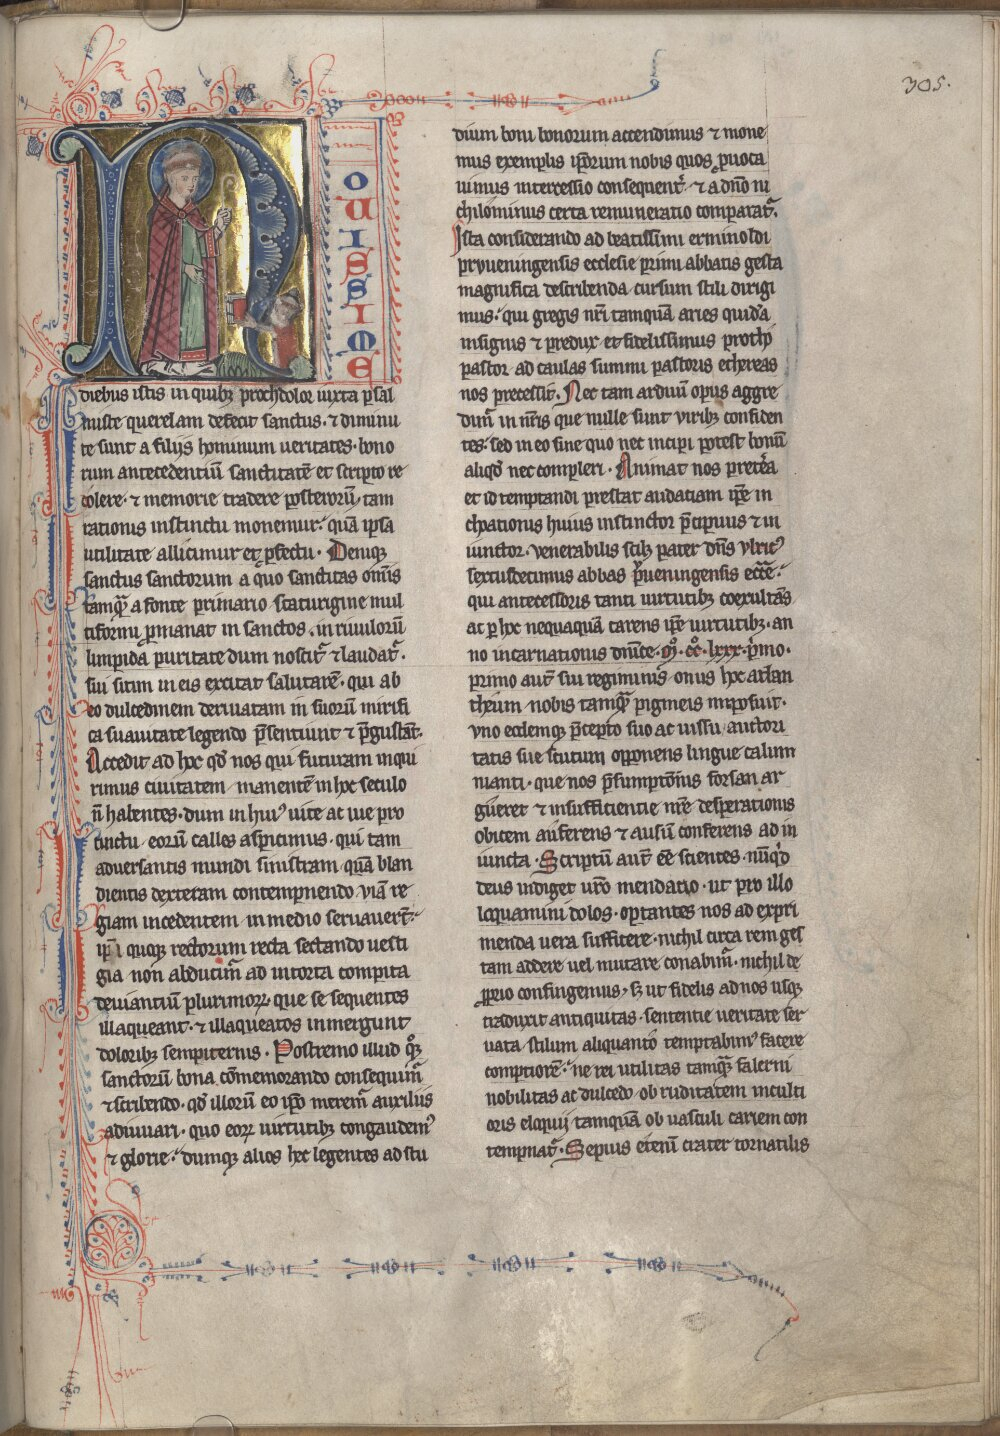 305.
NOVISSIME
diebus istis in quibꝫ prochdolor iuxta psal
miste querelam defecit sanctus ⁊ diminu
te sunt a filijs hominum veritates bono
rum antecedentiū sanctitatē et scripto re
colere ⁊ memorie tradere posterorū tam
rationis instinctu monemur quā ipsa
utilitate allicimur et ꝓfectu. Deniqꝫ
sanctus sanctorum a quo sanctitas omīs
tamqȝ a fonte primario scaturigine mul
tiformi ꝑmanat in sanctos in riuulorū
limpida puritate dum noscit᷑ ⁊ laudat᷑.
sui sitim in eis excitat salutarē qui ab
eo dulcedinem deriuatam in suorū mirifi
ca suauitate legendo p̄sentiunt ⁊ p̄gustāt.
Accedit ad hoc qd̓ nos qui futuram inqui
rimus ciuitatem manentē in hoc seculo
n̄ habentes. dum in huiꝰ uite ac uie pro
cinctu eorū calles aspicimus qui tam
aduersantis mundi sinistram quā blan
dientis dexteram contempnendo viā re
giam incedentem in medio seruauer̄t.
ip̄i quoqꝫ rectorum recta sectando uesti
gia non abducim᷑ ad intorta compita
deuiantiū plurimoꝝ que se sequentes
illaqueant ⁊ illaqueatos inmergunt
doloribꝫ sempiternis. Postremo illud
sanctorū bona cōmemorando consequim᷑
⁊ scribendo. qd̓ illorū eo ip̄o merem᷑ auxilijs
adiuuari quo eoꝝ uirtutibꝫ congaudemꝰ
⁊ glorie. dumqꝫ alios hec legentes ad stu
dium boni bonorum accendimus ⁊ mone
mus exemplis ipsorum nobis quos ꝓuoca
uimus intercessio consequent᷑ ⁊ a dn̄o ni
chilominus certa remuneratio comparat᷑.
Ista considerando ad beatissimi erminoldi
pruueningensis ecclesie primi abbatis gesta
magnifica describenda cursum stili dirigi
mus qui gregis nr̄i tamquā aries quidā
insignis ⁊ predux et fidelissimus proth
pastor ad caulas summi pastoris ethereas
nos precessit. Nec tam arduū opus aggre
dim᷑ in nr̄is que nulle sunt viribꝫ confiden
tes sed in eo sine quo nec incipi potest bonū
aliqd̓ nec compleri. Animat nos pretēa
et id temptandi prestat audatiam ip̄e in
choationis huius instinctor p̄cipuus ⁊ in
iunctor venerabilis scilꝫ pater dn̄s vlricꝰ
sextusdecimus abbas p̄ueningensis ecc̄e
qui antecessoris tanti uirtutibꝫ coexultās
ac ꝑ hoc nequaquā carens ip̄e uirtutibꝫ an
no incarnationis dn̄ice. mͦ. ccͦ. lxxx. p̓mo.
primo aut̄ sui regiminis onus hoc atlan
theum nobis tamqȝ pigmeis inposuit.
vno eodemqꝫ p̄cepto suo ac iussu auctori
tatis sue scutum opponens lingue calum
nianti que nos p̄sumptōnis forsan ar
gueret ⁊ insufficientie nr̄e desperationis
obicem auferens ⁊ ausū conferens ad in
iuncta. Scriptū aut̄ ēē scientes nūq̓d
deus indiget uro mendatio ut pro illo
loquamini dolos. optantes nos ad expri
menda uera sufficere nichil circa rem ges
tam addere uel mutare conabim᷑. nichil de
ꝓprio confingemus, sꝫ ut fidelis ad nos usqꝫ
traduxit antiquitas sententie veritate ser
uata stilum aliquanto temptabimꝰ facere
comptiorē ne rei utilitas tamqȝ falerni
nobilitas ac dulcedo ob ruditatem inculti
oris eloquij tamquā ob uasculi cariem con
tempnat᷑. Sepius etenī crater tornatilis